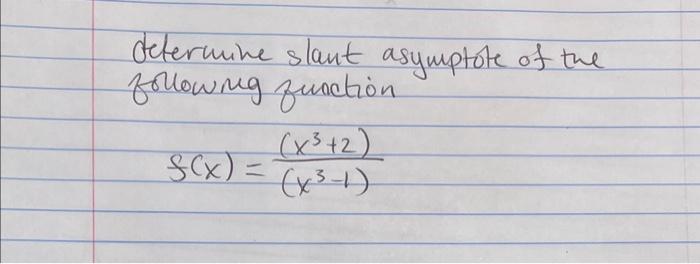 determine slant asymptote of the
following function
f(x) = (x³+2)
(x³-1)